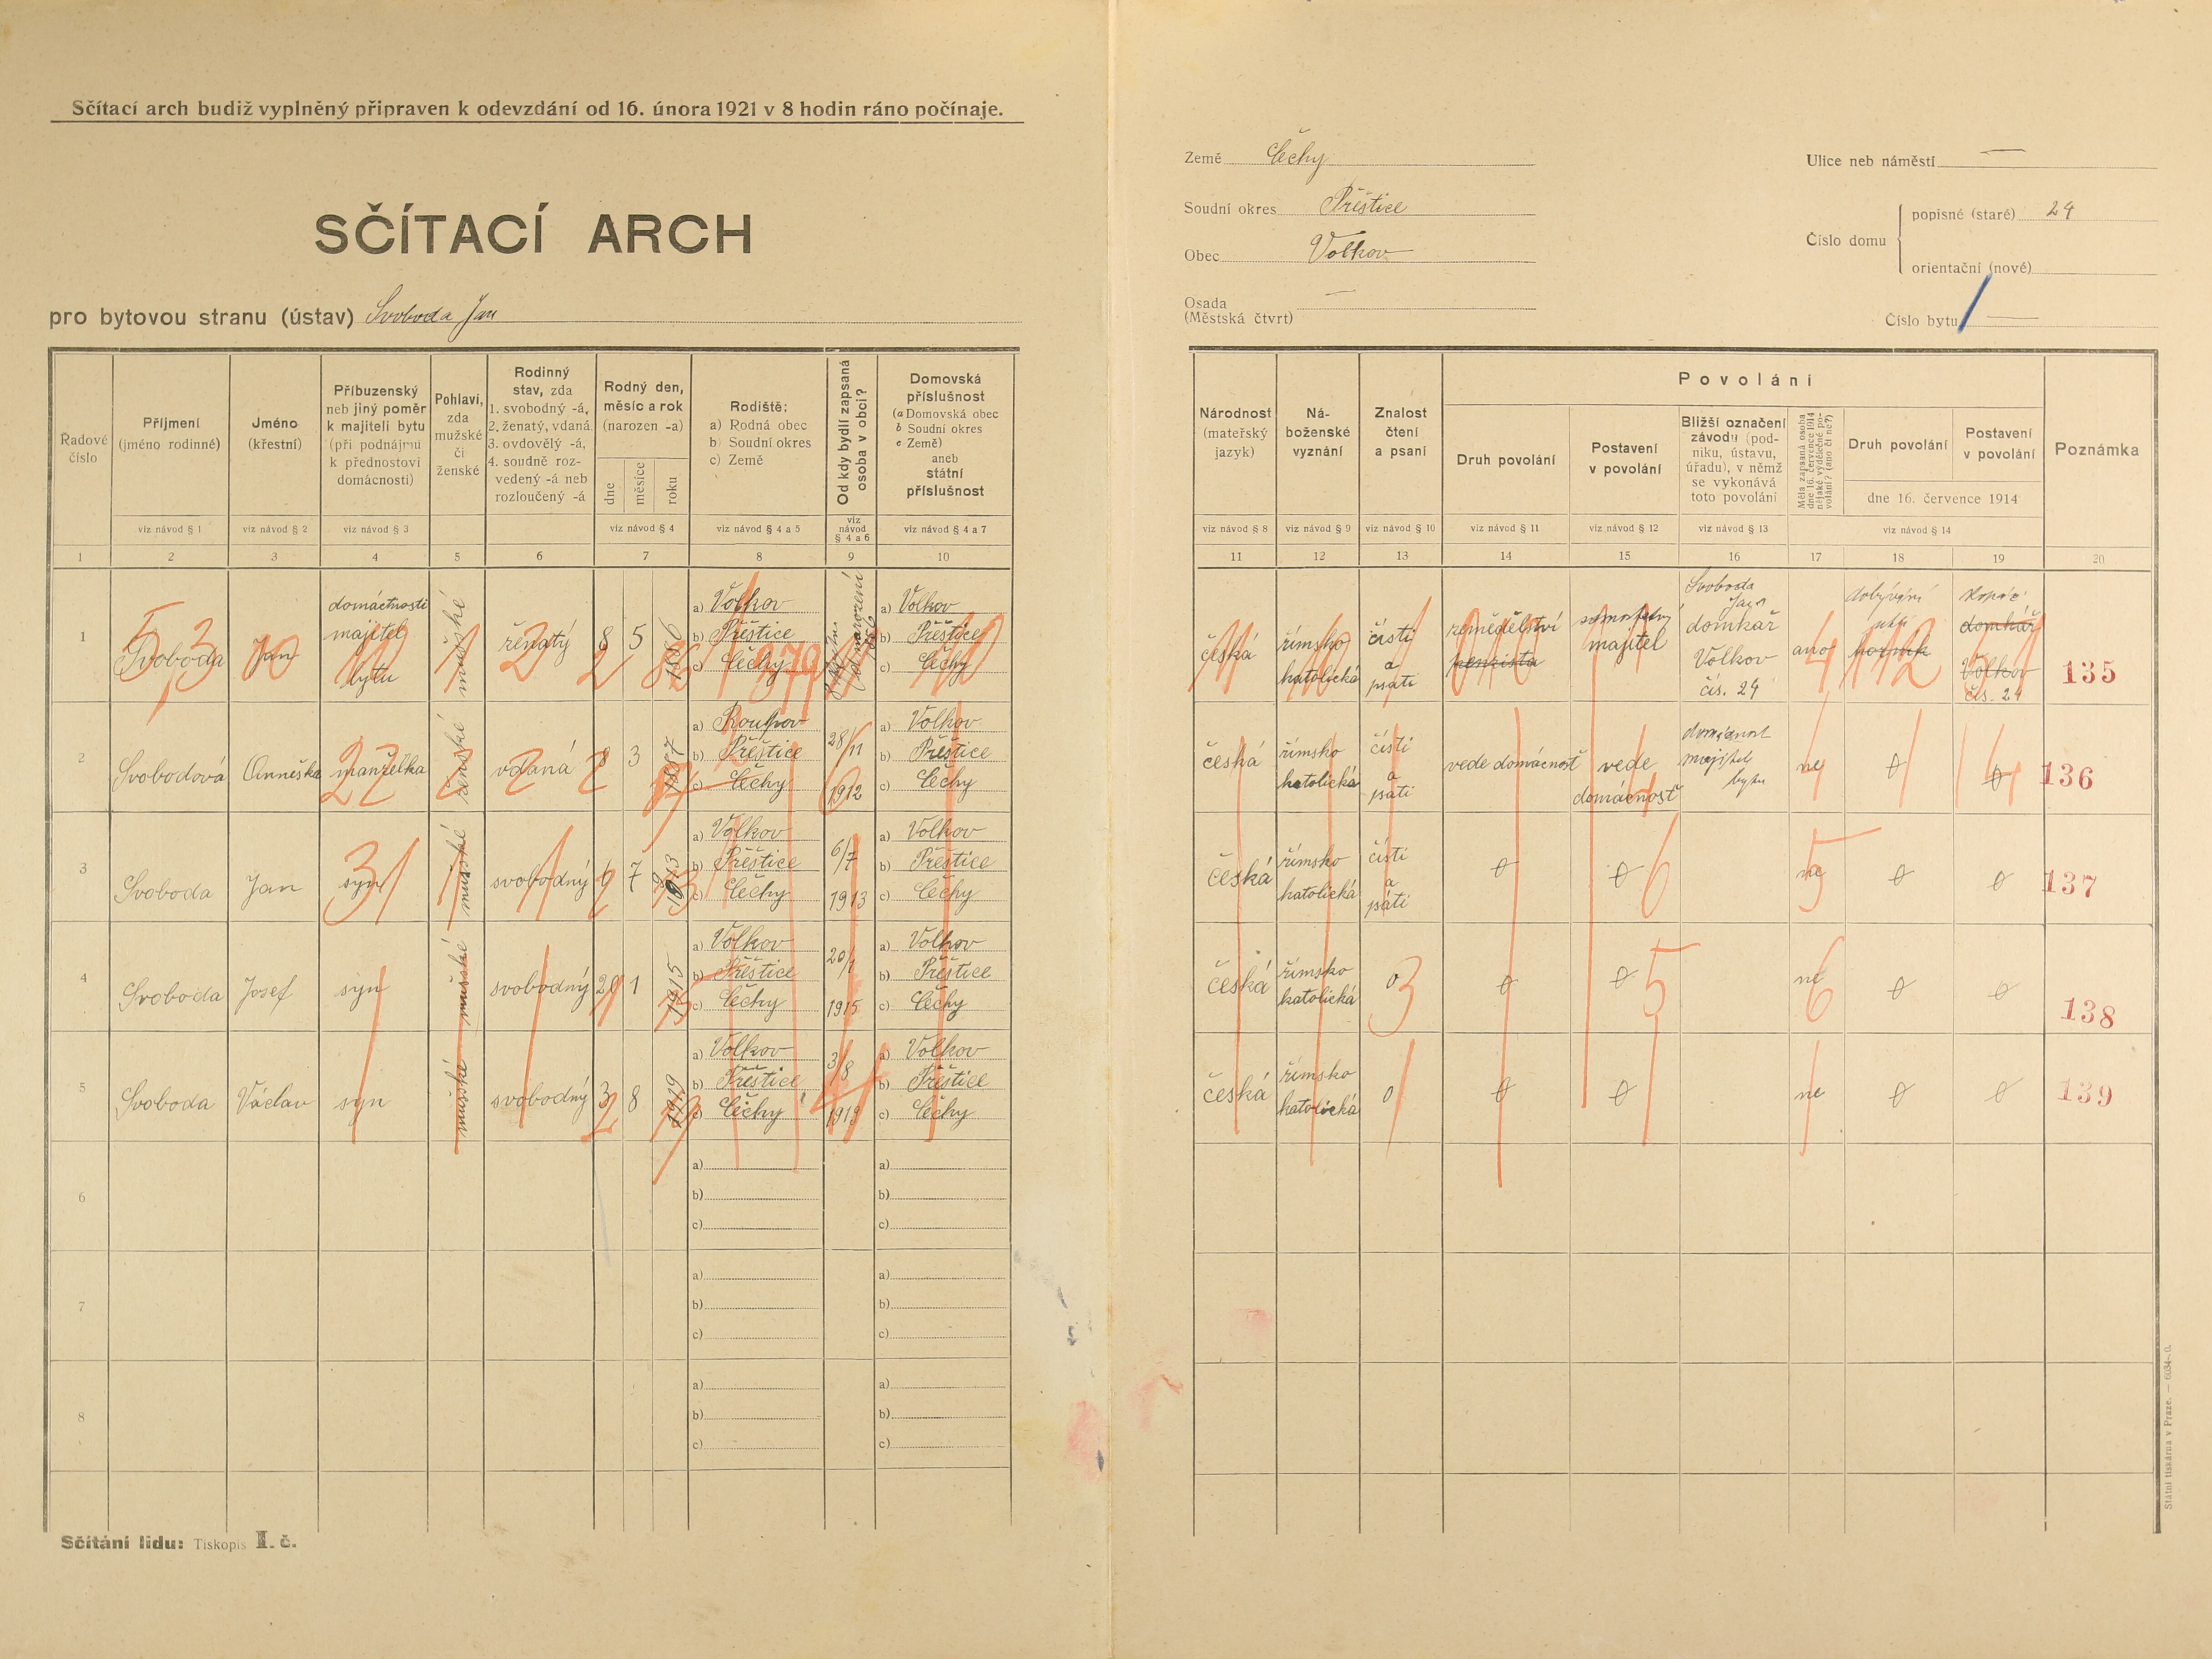 Sčítací arch budiž vyplněný připraven k odevzdání od 16. února 1921 v 8 hodin ráno počínaje.
SČÍTACÍ ARCH
pro bytovou stranu (ústav) Svoboda Jan
Země Čechy
Soudní okres Přeštice
Obec Volkov
Osada
(Městská čtvrt) —
Ulice neb náměstí —
Číslo domu
popisné (staré) 24
orientační (nové)
Číslo bytu —
Řadové číslo
Příjmení (jméno rodinné)
Jméno (křestní)
Příbuzenský neb jiný poměr k majiteli bytu (při podnájmu k přednostovi domácnosti)
Pohlaví, zda mužské či ženské
Rodinný stav, zda 1. svobodný -á, 2. ženatý, vdaná 3. ovdovělý -á, 4. soudně rozvedený -á neb rozloučený -á
Rodný den, měsíc a rok (narozen -a)
dne měsíce roku
Rodiště: a) Rodná obec b) Soudní okres c) Země
Od kdy bydlí zapsaná osoba v obci?
Domovská příslušnost (a Domovská obec b Soudní okres c Země) aneb státní příslušnost
Národnost (mateřský jazyk)
Náboženské vyznání
Znalost čtení a psaní
Povolání
Druh povolání
Postavení v povolání
Bližší označení závodu (podniku, ústavu, úřadu), v němž se vykonává toto povolání
Měla zapsaná osoba dne 16. července 1914 nějaké výdělečné povolání? (ano či ne?)
Druh povolání
Postavení v povolání
dne 16. července 1914
Poznámka
viz návod § 1 viz návod § 2 viz návod § 3 viz návod § 4 viz návod § 4 a 5 viz návod § 4 a 6 viz návod § 4 a 7 viz návod § 8 viz návod § 9 viz návod § 10 viz návod § 11 viz návod § 12 viz návod § 13 viz návod § 14
1 2 3 4 5 6 7 8 9 10 11 12 13 14 15 16 17 18 19 20
1 Svoboda Jan domácnosti majitel bytu mužské ženatý 8 5 1886
a) Volkov
b) Přeštice
c) Čechy
od narození
a) Volkov
b) Přeštice
c) Čechy
česká římsko katolická čísti a psáti zemědělství majitel
Svoboda Jan domkář Volkov čís. 24
ano dobývání uhlí horník
kopáč domkář Volkov čís. 24
135
2 Svobodová Anněška manželka ženské vdaná 8 3 1887
a) Roupov
b) Přeštice
c) Čechy
28/11 1912
a) Volkov
b) Přeštice
c) Čechy
česká římsko katolická čísti a psáti vede domácnosť vede domácnosť
domácnost majitel bytu
ne 0 0 136
3 Svoboda Jan syn mužské svobodný 6 7 1913
a) Volkov
b) Přeštice
c) Čechy
6/7 1913
a) Volkov
b) Přeštice
c) Čechy
česká římsko katolická čísti a psáti 0 0 ne 0 0 137
4 Svoboda Josef syn mužské svobodný 20 1 1915
a) Volkov
b) Přeštice
c) Čechy
20/1 1915
a) Volkov
b) Přeštice
c) Čechy
česká římsko katolická 0 0 0 ne 0 0 138
5 Svoboda Václav syn mužské svobodný 3 8 1919
a) Volkov
b) Přeštice
c) Čechy
3/8 1919
a) Volkov
b) Přeštice
c) Čechy
česká římsko katolická 0 0 0 ne 0 0 139
6
a)
b)
c)
a)
b)
c)
7
a)
b)
c)
a)
b)
c)
8
a)
b)
c)
a)
b)
c)
Sčítání lidu: Tiskopis I. č.
Státní tiskárna v Praze. — 6034-20.